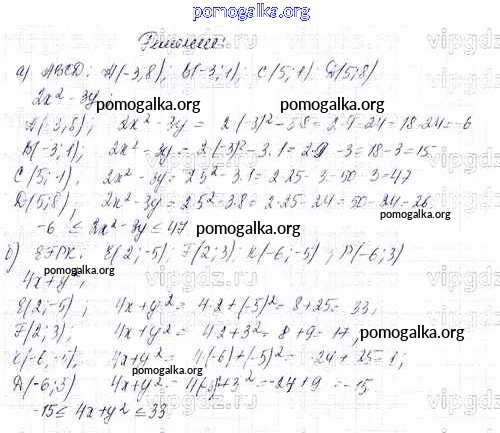 pomogalka.org
Решение:
а) ABCD: A(-3,8); B(-3;1); C(5;1) D(5;8)
2x² - 3y;
pomogalka.org pomogalka.org
A(-3;8); 2x² - 3y = 2·(-3)² - 3·8 = 2·9 - 24 = 18 - 24 = -6
B(-3;1); 2x² - 3y = 2·(-3)² - 3·1 = 2·9 - 3 = 18 - 3 = 15
C(5;1), 2x² - 3y = 2·5² - 3·1 = 2·25 - 3 = 50 - 3 = 47
D(5;8), 2x² - 3y = 2·5² - 3·8 = 2·25 - 24 = 50 - 24 = 26.
-6 ≤ 2x² - 3y ≤ 47 pomogalka.org
б) EFPK: E(2;-5); F(2;3); K(-6;-5); P(-6;3)
4x + y²;
E(2;-5); 4x + y² = 4·2 + (-5)² = 8 + 25 = 33,
F(2;3); 4x + y² = 4·2 + 3² = 8 + 9 = 17, pomogalka.org
K(-6,-5), 4x + y² = 4(-6) + (-5)² = -24 + 25 = 1;
(-6;3) 4x + y² = 3² = -24 + 9 = -15
pomogalka.org
-15 ≤ 4x + y² ≤ 33
vipgdz.ru